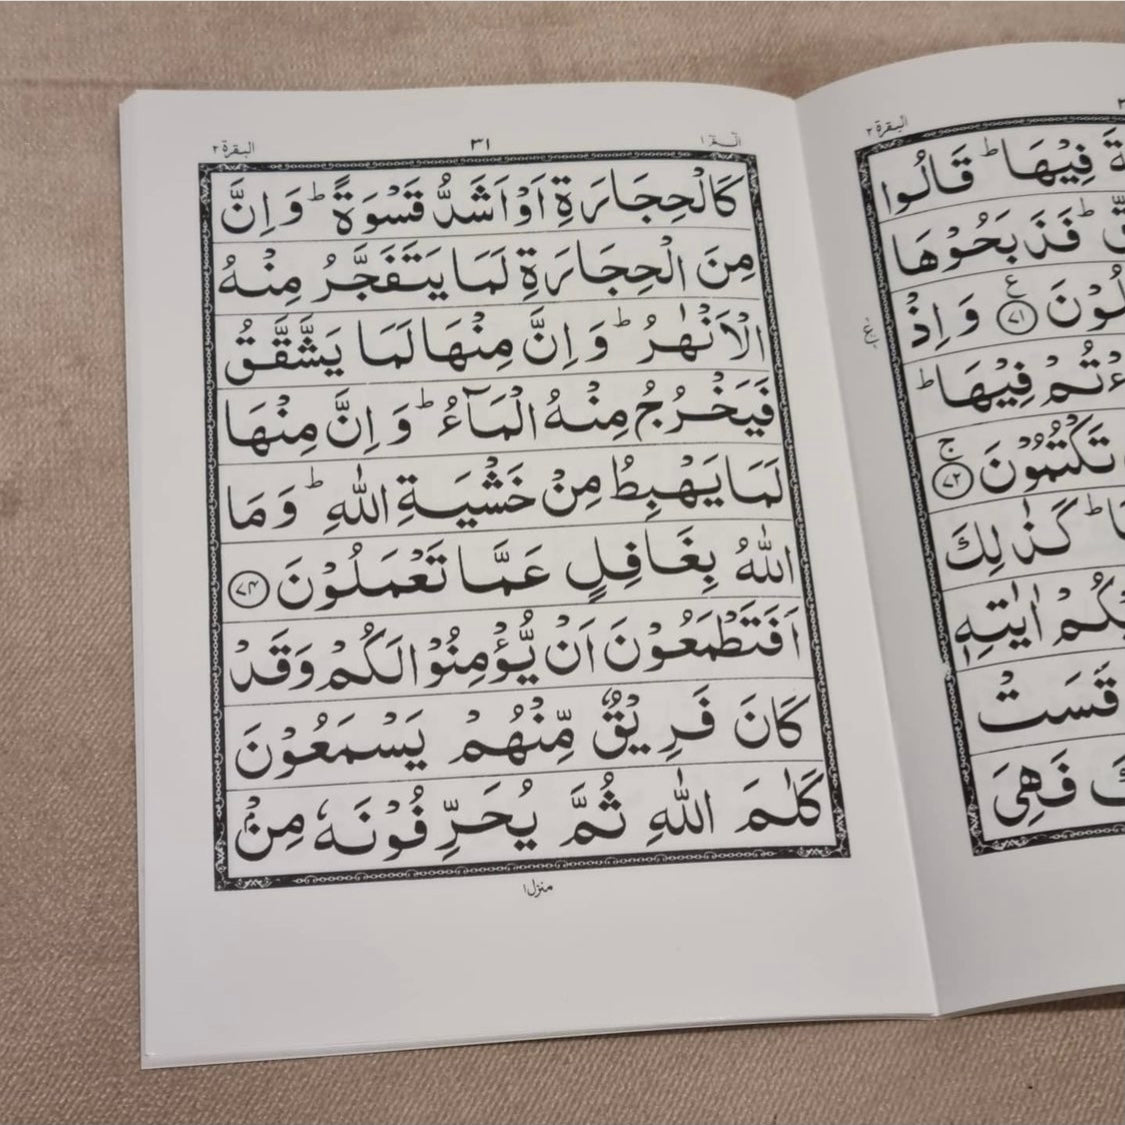 البقرة ٢
٣١
كَالْحِجَارَةِ اَوْ اَشَدُّ قَسْوَةً ؕ وَ اِنَّ
مِنَ الْحِجَارَةِ لَمَا يَتَفَجَّرُ مِنْهُ
الْاَنْهٰرُ ؕ وَ اِنَّ مِنْهَا لَمَا يَشَّقَّقُ
فَيَخْرُجُ مِنْهُ الْمَآءُ ؕ وَ اِنَّ مِنْهَا
لَمَا يَهْبِطُ مِنْ خَشْيَةِ اللّٰهِ ؕ وَمَا
اللّٰهُ بِغَافِلٍ عَمَّا تَعْمَلُوْنَ ﴿۷۴﴾
اَفَتَطْمَعُوْنَ اَنْ يُّؤْمِنُوْا لَكُمْ وَقَدْ
كَانَ فَرِيْقٌ مِّنْهُمْ يَسْمَعُوْنَ
كَلٰمَ اللّٰهِ ثُمَّ يُحَرِّفُوْنَهٗ مِنْۢ
منزل ١
البقرة ٢
فِيْهَا ؕ قَالُوا
فَذَبَحُوْهَا
﴿۷۱﴾ وَ اِذْ
فِيْهَا ؕ
تَكْتُمُوْنَ ﴿۷۲﴾ ۚ
ؕ كَذٰلِكَ
اٰيٰتِهٖ
قَسَتْ
فَهِىَ